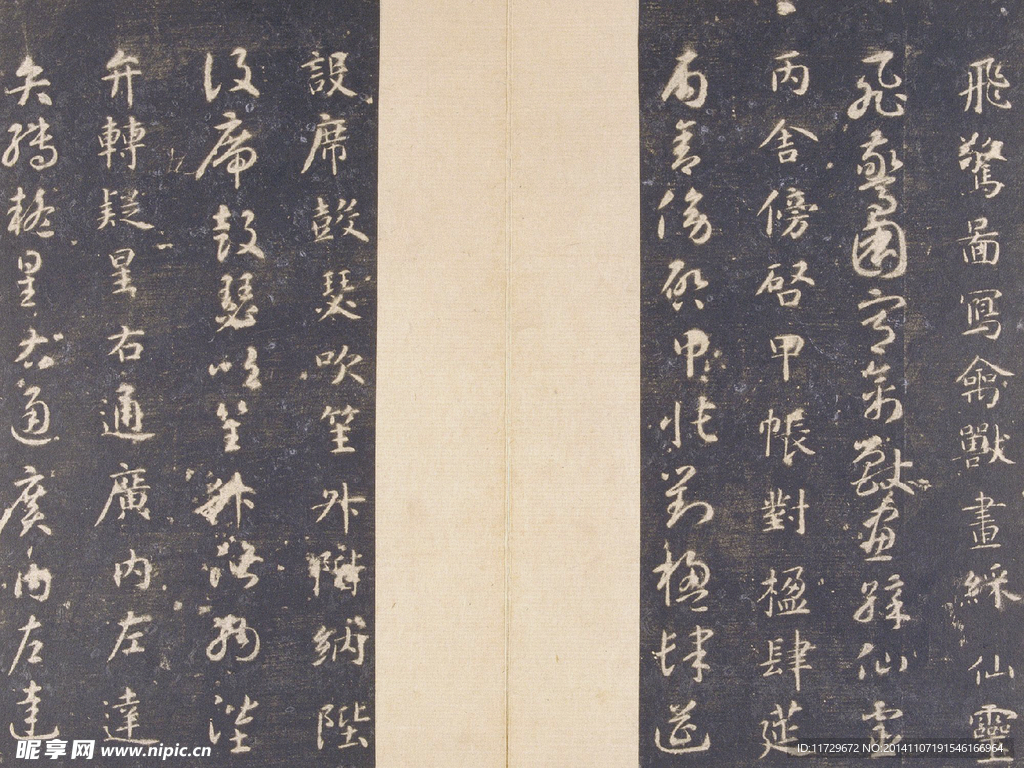 飛驚圖寫禽獸畫綵仙靈
飛驚圖寫禽獸畫綵仙靈
丙舍傍啓甲帳對楹肆筵
丙舍傍啓甲帳對楹肆筵
設席鼓瑟吹笙升階納陛
設席鼓瑟吹笙升階納陛
弁轉疑星右通廣內左達
弁轉疑星右通廣內左達
昵享网 www.nipic.cn
ID:11729672 NO:20141107191546166964